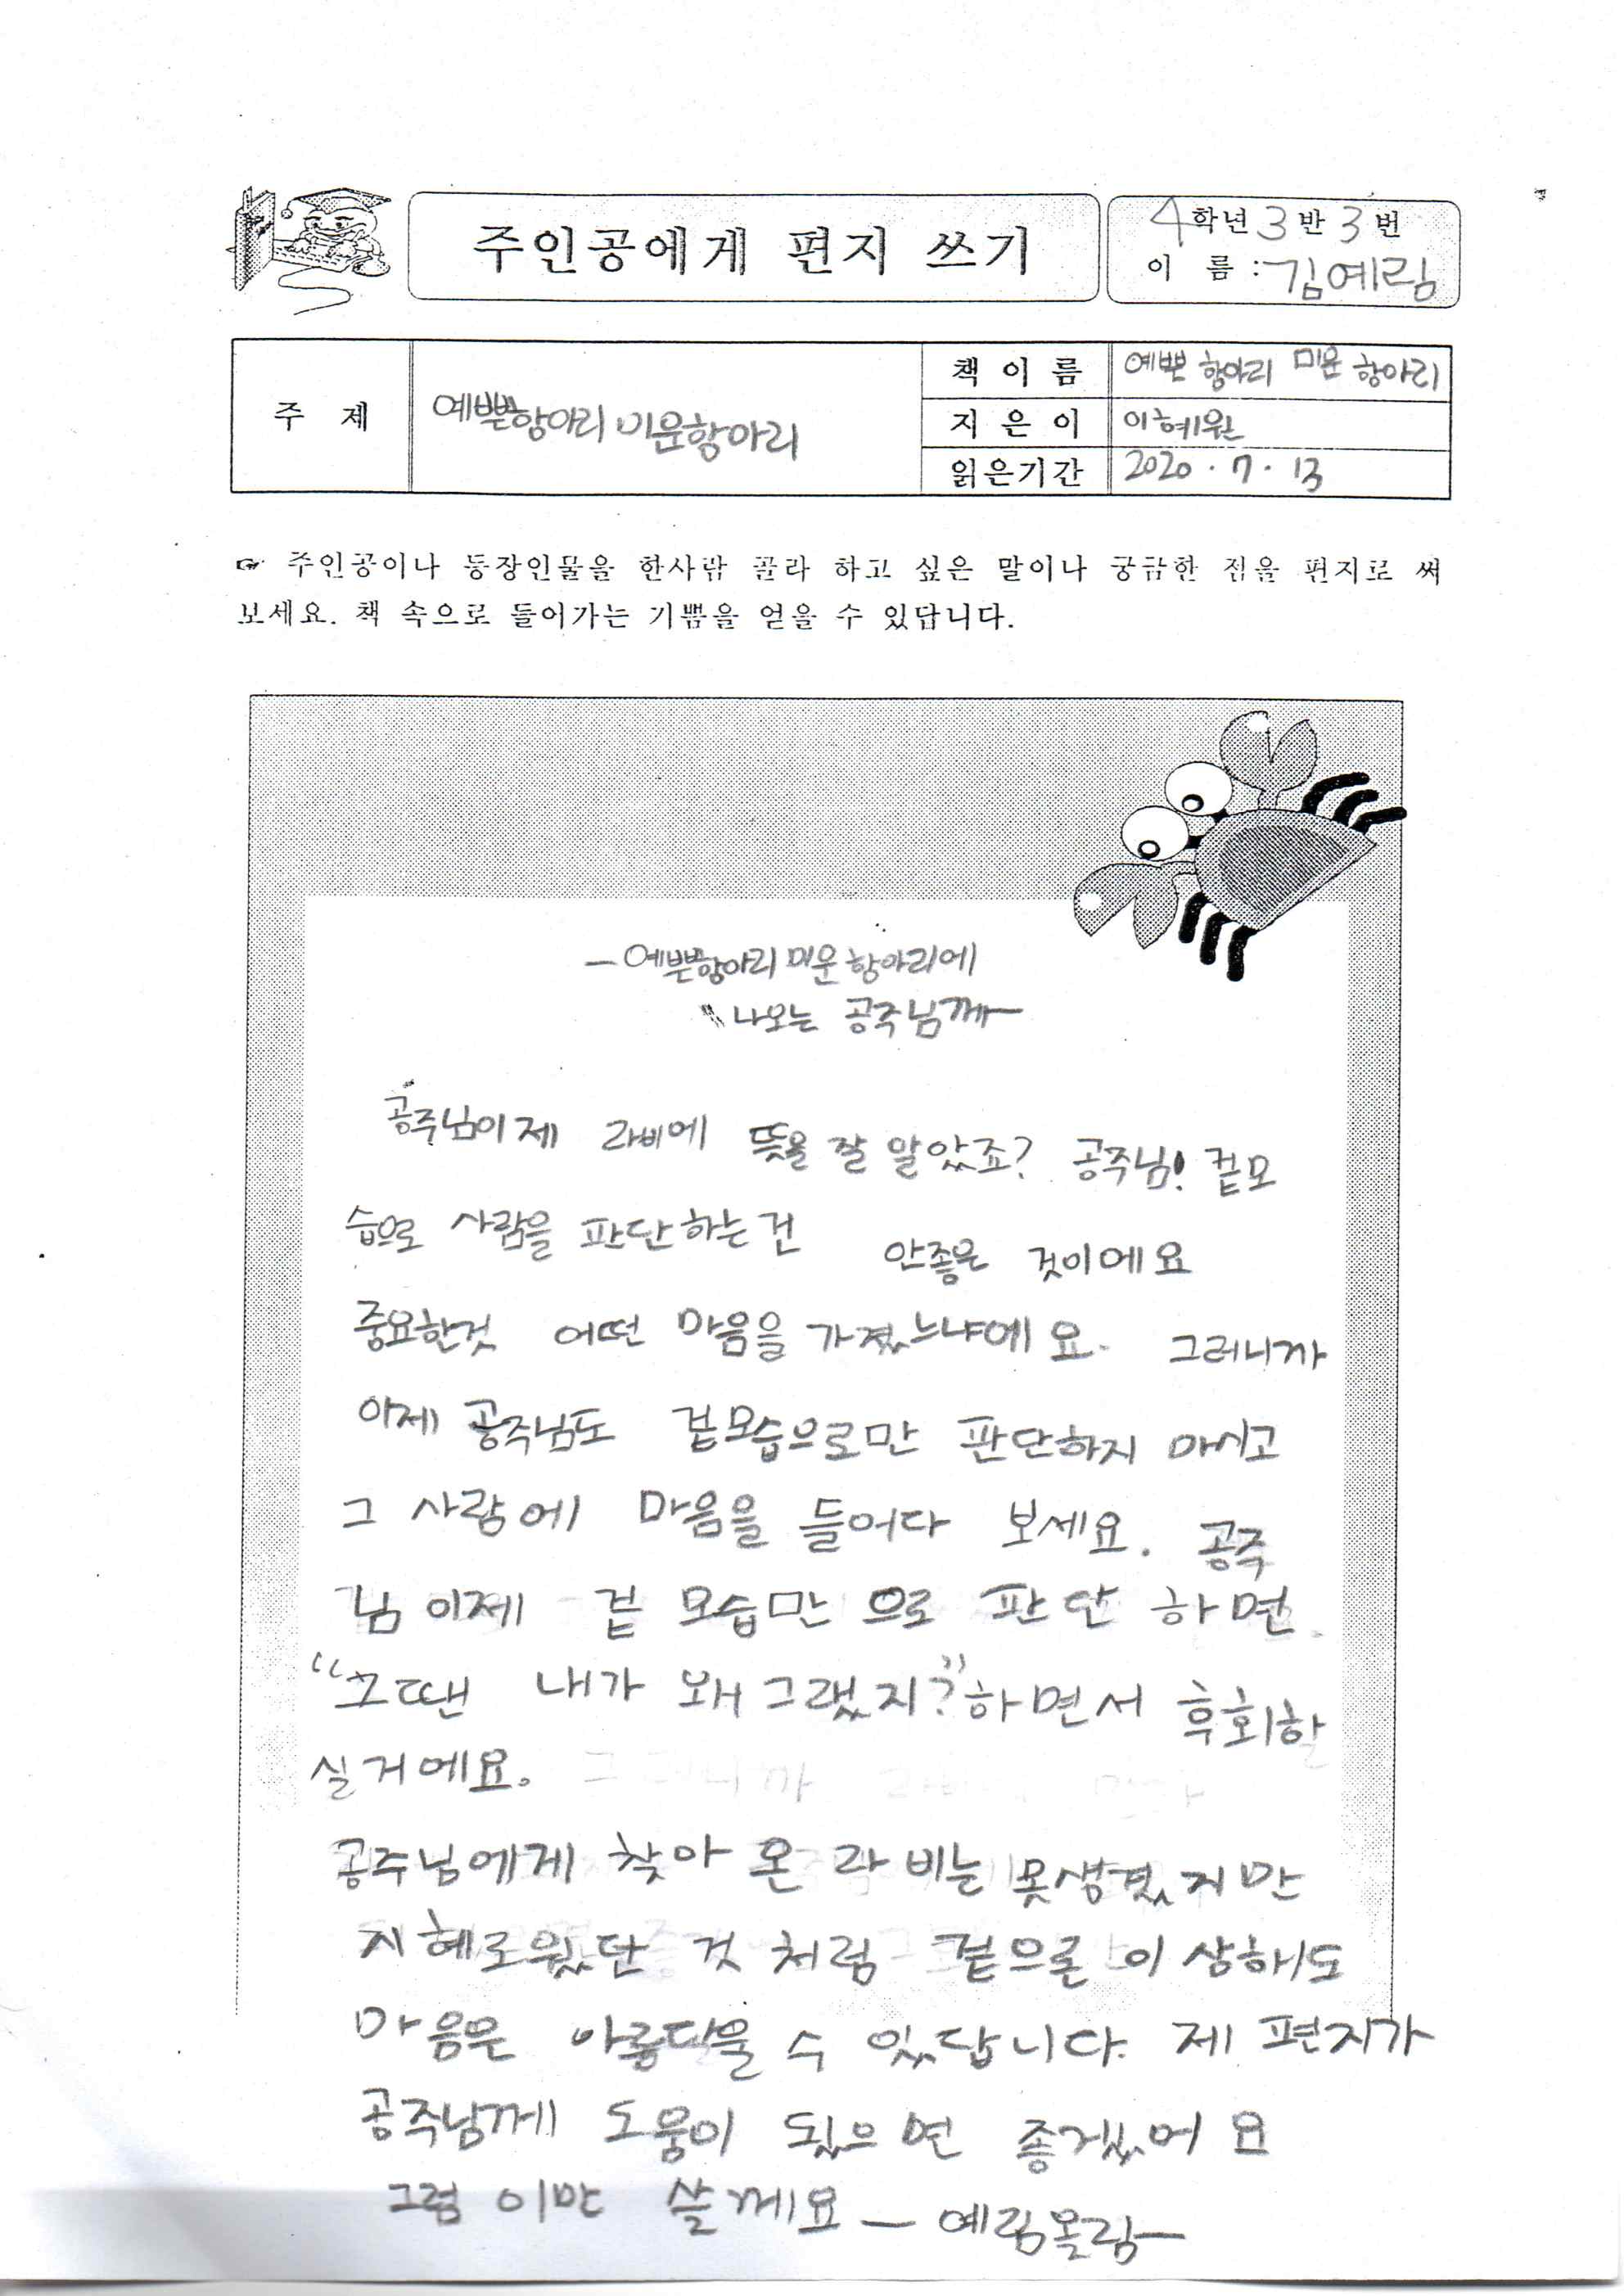 주인공에게 편지 쓰기
4학년 3반 3번
이 름 : 김예림
주 제
예쁜항아리 미운항아리
책 이 름
예쁜 항아리 미운 항아리
지 은 이
이혜원
읽은기간
2020 . 7 . 13
☞ 주인공이나 등장인물을 한사람 골라 하고 싶은 말이나 궁금한 점을 편지로 써
보세요. 책 속으로 들어가는 기쁨을 얻을 수 있답니다.
— 예쁜항아리 미운 항아리에
나오는 공주님께—
공주님이제 라비에 뜻을 잘 알았죠? 공주님! 겉모
습으로 사람을 판단하는건 안좋은 것이에요
중요한것 어떤 마음을 가졌느냐에요. 그러니까
이제 공주님도 겉모습으로만 판단하지 마시고
그 사람에 마음을 들어다 보세요. 공주
님 이제 겉 모습만 으로 판단 하면
“그땐 내가 왜 그랬지?”하면서 후회할
실거에요.
공주님에게 찾아 온 라비는 못생겼지만
지혜로웠단 것 처럼 겉으론 이상해도
마음은 아름다울 수 있답니다. 제 편지가
공주님께 도움이 됬으면 좋겠어요
그럼 이만 쓸께요 — 예림올림—